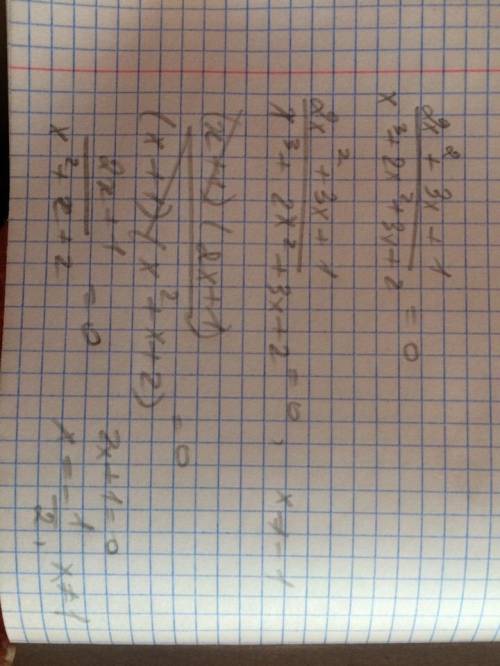 2x² + 3x + 1 / x³ + 2x² + 3x + 2 = 0
2x² + 3x + 1 / x³ + 2x² + 3x + 2 = 0, x ≠ -1
(x+1)(2x+1) / (x+1)(x² + x + 2) = 0
2x + 1 / x² + x + 2 = 0 2x + 1 = 0
x = -1/2, x ≠ 1